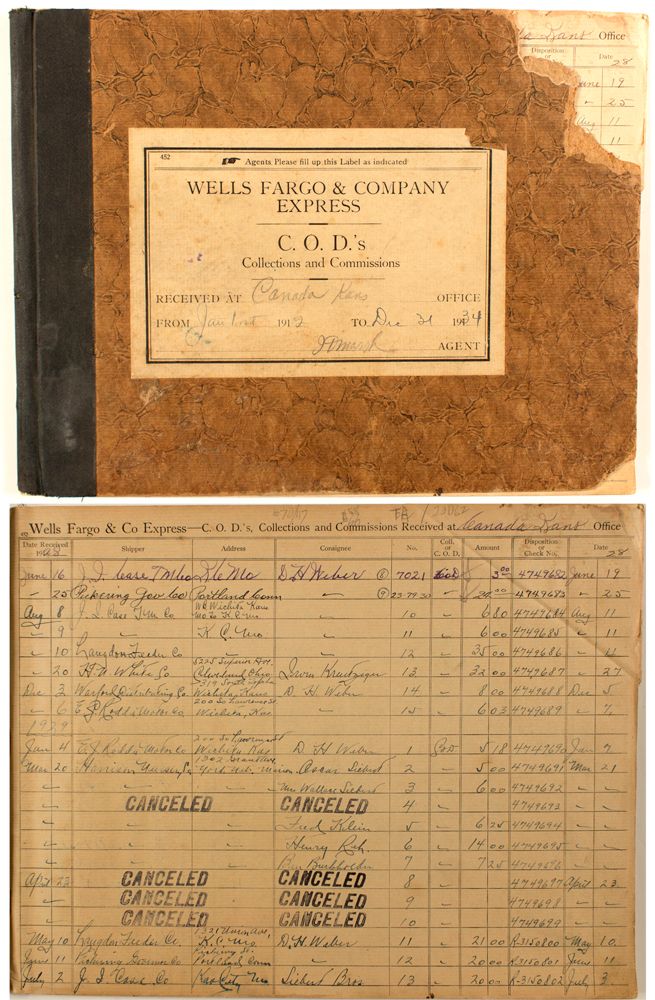 Kans Office
Disposition
or
Date
28
June 19
" 25
Aug 11
11
452
Agents Please fill up this Label as indicated
WELLS FARGO & COMPANY
EXPRESS
C. O. D.'s
Collections and Commissions
RECEIVED AT Canada Kans OFFICE
FROM Jan 1st 1912 TO Dec 31 1934
AGENT
Wells Fargo & Co Express—C. O. D.'s, Collections and Commissions Received at Canada Kans Office
Date Received Shipper Address Consignee No. Coll. or C. O. D. Amount Disposition or Check No. Date
28
June 16 J. I. Case T M Co Mo D H Weber 7021 COD 3 00 4749682 June 19
" 25 Pickering Gov Co Portland Conn " 237930 " 20 00 4749683 " 25
Aug 8 J. I. Case T M Co Wichita Kans K. C. Mo " 10 " 6 80 4749684 Aug 11
" 9 " K. C. Mo " 11 " 6 00 4749685 " 11
" 10 Langdon Feeder Co " " 12 " 35 00 4749686 " 11
" 20 H. A. White Co 5225 Superior Ave. Cleveland Ohio Irvin 13 " 32 00 4749687 " 27
Dec 3 Warford Distributing Co Wichita, Kans D. H. Weber 14 " 8 00 4749688 Dec 5
" 6 E. J. Rodda Motor Co 200 So Lawrence St Wichita, Kas " 15 " 6 03 4749689 " 7
1929
Jan 4 E. J. Rodda Motor Co 200 So Lawrence St Wichita Kas D. H Weber 1 COD 5 18 4749690 Jan 7
Mar 20 Harrison Nursery Co 1302 Grand Ave, York Neb. Oscar Siebert 2 " 5 00 4749691 Mar 21
" " " Mrs Wallace Siebert 3 " 6 00 4749692 " "
" CANCELED CANCELED 4 " 4749693 " "
" " " Fred Klein 5 " 6 25 4749694 " "
" " " Henry 6 " 14 00 4749695 " "
" " " Ben Burkholder 7 " 7 25 4749696 " "
April 23 CANCELED CANCELED 8 " 4749697 April 23
" CANCELED CANCELED 9 " 4749698 " "
" CANCELED CANCELED 10 " 4749699 " "
May 10 Langdon Feeder Co. 1321 Union Ave, K. C. Mo. D. H. Weber 11 " 21 00 R-3150800 May 10
June 11 Pickering Governor Co Pickering St Portland, Conn " 12 " 20 00 R-3150801 June 11
July 2 J. I. Case Co Kas City Mo Siebert Bros. 13 " 20 00 R-3150802 July 3